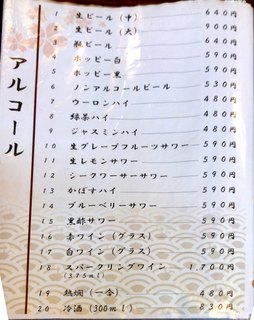 アルコール
1 生ビール（中） 640円
2 生ビール（大） 900円
3 瓶ビール 640円
4 ホッピー白 590円
5 ホッピー黒 590円
6 ノンアルコールビール 530円
7 ウーロンハイ 480円
8 緑茶ハイ 480円
9 ジャスミンハイ 480円
10 生グレープフルーツサワー 590円
11 生レモンサワー 590円
12 シークワーサーサワー 590円
13 かぼすハイ 590円
14 ブルーベリーサワー 590円
15 黒酢サワー 590円
16 赤ワイン（グラス） 590円
17 白ワイン（グラス） 590円
18 スパークリングワイン 1,700円
(375ml)
19 熱燗（一合） 480円
20 冷酒（300ml） 830円